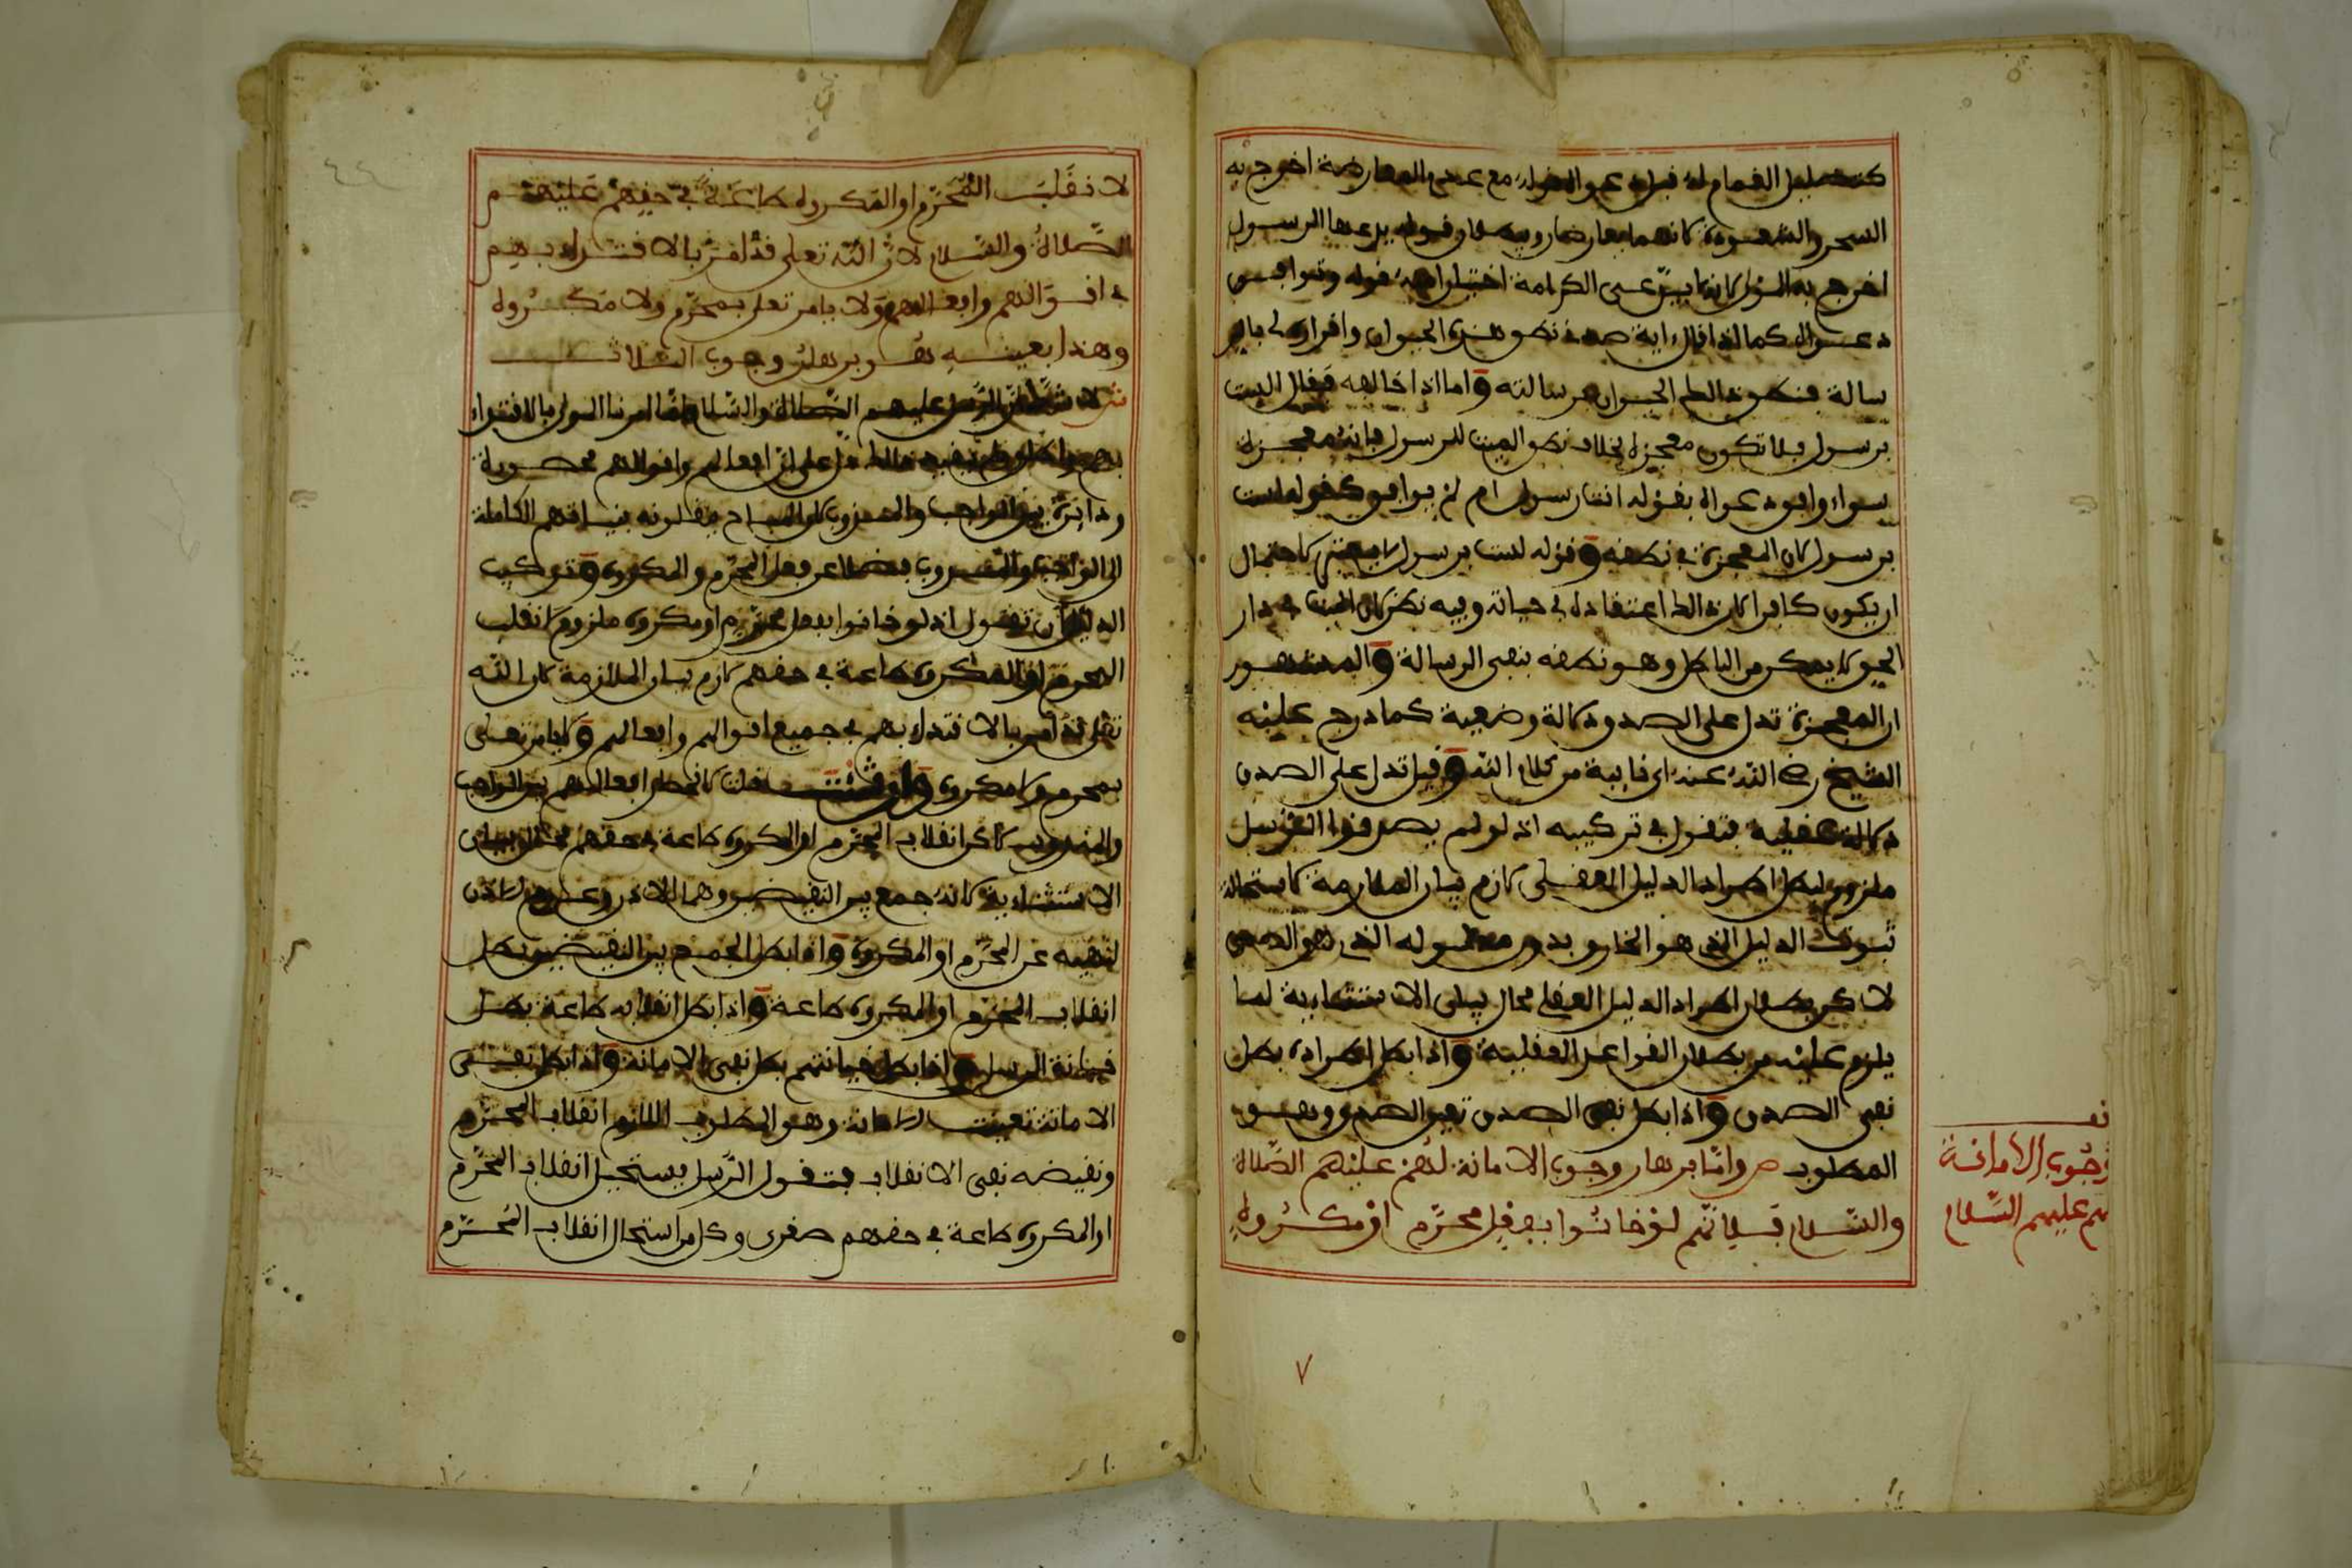 كتظليل الغمام له قبل دعوى الرسالة مع عدم المعارضة اخرج به
السحر والشعوذة لانهما يعارضان وقوله يدعيها الرسول
اخرج به
دعواه كما اذا قال اية صدقي نطق هذا الحيوان واقراره لي بالر
سالة فنطق ذلك الحيوان برسالته واما اذا خالفه فقال ليست
برسول فلا تكون معجزة بخلاف نطق الميت للرسول فانه معجزة
سواء وافق دعواه بقوله انت رسول ام لم يوافق كقوله لست
برسول لان المعجزة في نطقه وقوله لست برسول لا يعتبر لاحتمال
ان يكون كافرا كان ذلك اعتقاده في حياته وفيه نظر لان الميت في دار
الحق لا يمكر من الباطل وهو نطقه بنفي الرسالة والمشهور
ان المعجزة تدل على الصدق دلالة وضعية كما درج عليه
الشيخ رضي الله عنه اي نايبة من كلام الله وقيل تدل على الصدق
دلالة عقلية فتقول في تركيبه اذ لو لم يصدقوا الرسل
ملزوم لبطل اطراد الدليل العقلي لازم بيان الملازمة لاستحالة
ثبوت الدليل الذي هو الخارق بدون مدلوله الذي هو الصدق
لاكن بطلان اطراد الدليل العقلي محال بيان الاستثنائية لما
يلزم عليه من بطلان القواعد العقلية واذا بطل اطراده بطل
نفي الصدق واذا بطل نفي الصدق تعين الصدق وهو
المطلوب ص واما برهان وجوب الامانة لهم عليهم الصلاة
والسلام فلانهم لو خانوا بفعل محرم او مكروه
وجوب الامانة
لهم عليهم السلام
٧
لانقلب المحرم او المكروه طاعة في حقهم عليهم
الصلاة والسلام لان الله تعلى قد امر بالاقتداء بهم
في اقوالهم وافعالهم ولا يامر تعلى بمحرم ولا مكروه
وهذا بعينه هو برهان وجوب الثالث
ش لا شك ان الرسل عليهم الصلاة والسلام امرنا المولى بالاقتداء
بهم ذلك دل على ان افعالهم واقوالهم محصورة
ودائرة بين الواجب والمندوب والمباح ينقلونه بنياتهم الكاملة
الى الواجب والمندوب فضلا عن فعل المحرم والمكروه وتركيب
الدليل ان تقول اذ لو خانوا بفعل محرم او مكروه ملزوم لانقلب
المحرم او المكروه طاعة في حقهم لازم بيان الملازمة لان الله
تعلى قد امر بالاقتداء بهم في جميع اقوالهم وافعالهم ولا يامر تعلى
بمحرم ولا مكروه وان شئت قلت لانحصار افعالهم بين الواجب
والمندوب لاكن انقلاب المحرم او المكروه طاعة في حقهم محال بيان
الاستثنائية لانه جمع بين النقيضين وهما الاذن وعدم الاذن
لنهيه عن المحرم او المكروه واذا بطل الجمع بين النقيضين بطل
انقلاب المحرم او المكروه طاعة واذا بطل انقلابه طاعة بطل
خيانة الرسل واذا بطل خيانتهم بطل نفي الامانة واذا بطل نفي
الامانة تعينت الامانة وهو المطلوب اللازم انقلاب المحرم
ونقيضه نفي الانقلاب فتقول الرسل يستحيل انقلاب المحرم
او المكروه طاعة في حقهم صغرى وكل من استحال انقلاب المحرم